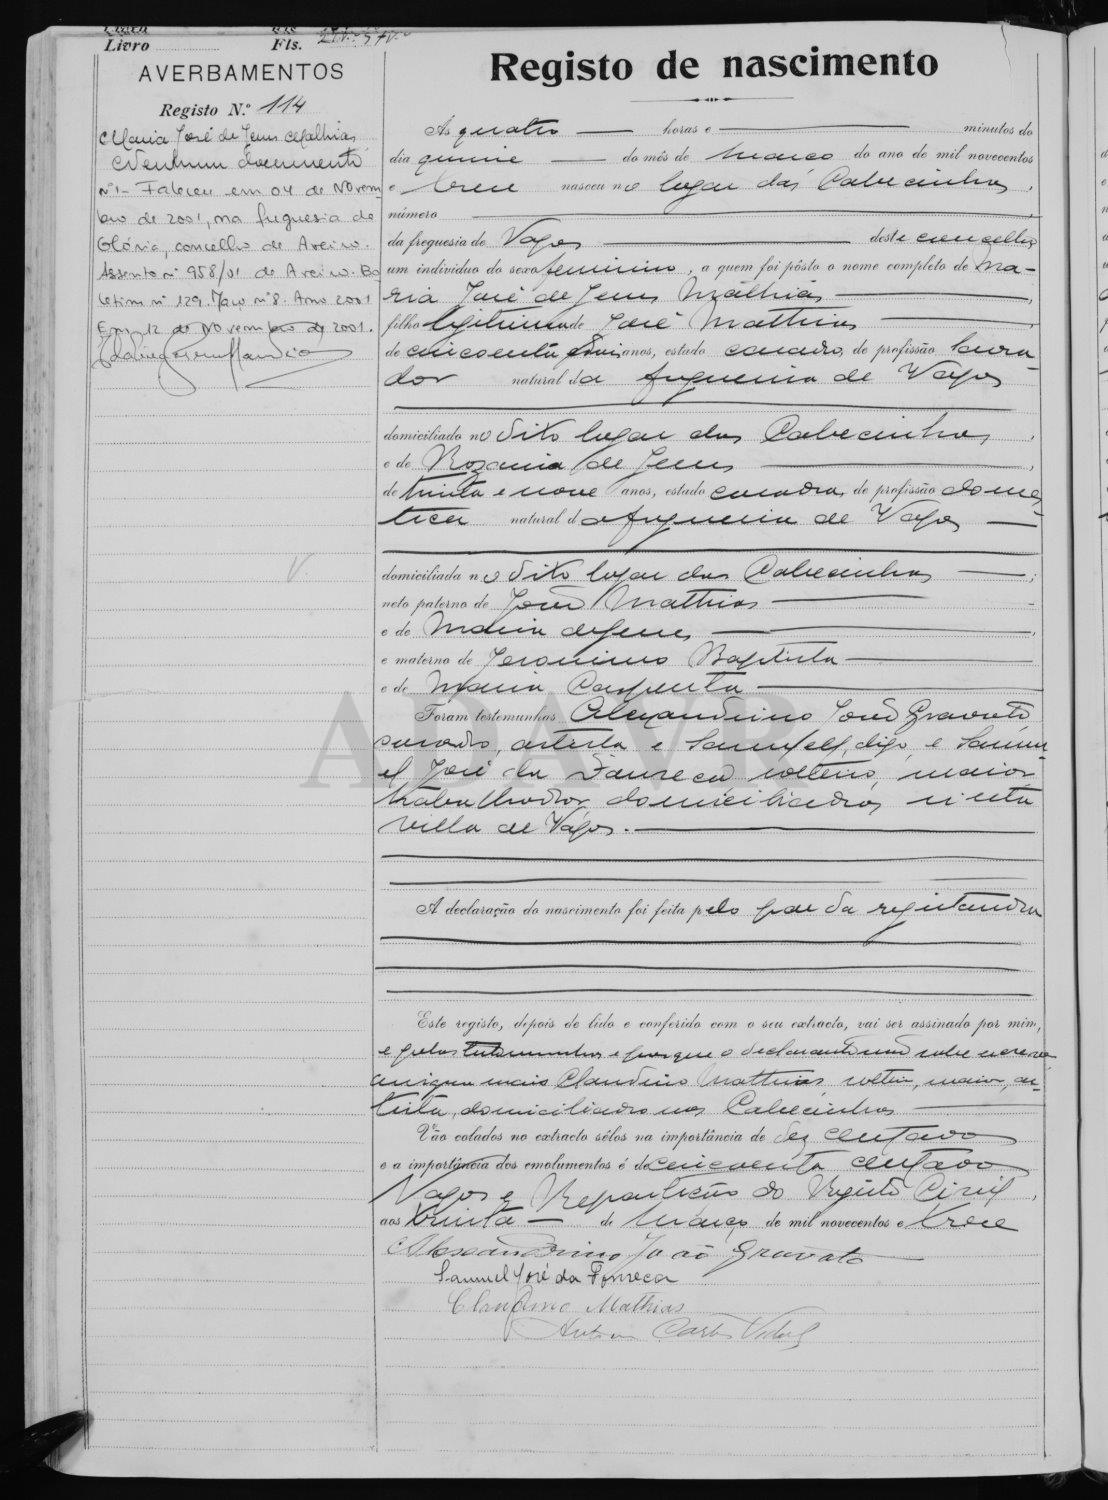 Livro Fls.
AVERBAMENTOS
Registo N.º 114
Maria José de Jesus Mathias
Nenhum documento
nº1- Faleceu em 04 de Novem
bro de 2001, na freguesia da
Glória, concelho de Aveiro.
Assento nº 958/01 de Aveiro. Bo
letim nº 129. Maço nº 8. Ano 2001
Em, 12 de Novembro de 2001.
Registo de nascimento
Ás quatro horas e minutos do
dia quinze do mês de Março do ano de mil novecentos
e treze nasceu no logar das Cabecinhas,
número
da freguesia de Vagos deste concelho
um individuo do sexo feminino, a quem foi pôsto o nome completo de Ma-
ria José de Jesus Mathias,
filho legitimo de José Mathias,
de cincoenta anos, estado casado, de profissão lavra-
dor natural da freguesia de Vagos
domiciliado no dito logar das Cabecinhas,
e de Rozaria de Jesus,
de trinta e nove anos, estado casada, de profissão domes-
tica natural da freguesia de Vagos
domiciliada no dito logar das Cabecinhas;
neto paterno de João Mathias
e de Maria de Jesus,
e materno de Jeronimo Baptista
e de Maria
Foram testemunhas Alexandrino João Gravato,
casado, artista e Samuel, digo, e Samu-
el José da Fonseca solteiro, maior
trabalhador, domiciliados n'esta
villa de Vagos.
A declaração do nascimento foi feita pelo pae da registanda
Este registo, depois de lido e conferido com o seu extracto, vai ser assinado por mim,
e pelas testemunhas e porque o declarante não sabe escrever
assigna mais Claudino Mathias solteiro, maior, ar-
tista, domiciliado nas Cabecinhas
Vão colados no extracto sêlos na importância de dez centavos
e a importância dos emolumentos é de cincoenta centavos
Vagos e Repartição do Registo Civil,
aos trinta de Março de mil novecentos e treze
Alexandrino João Gravato
Samuel José da Fonseca
Claudino Mathias
Antonio Carlos Vidal
ADAVR